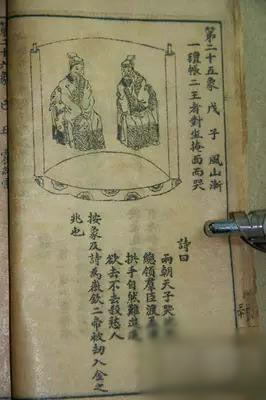 第二十五象 戊子 風山漸
一氊帳二王者對坐掩面而哭
詩曰
兩朝天子哭
總領羣臣渡
拱手自然難進
欲去不去殺愁人
按象及詩為徽欽二帝被劫入金之
兆也
第二十六象 己丑